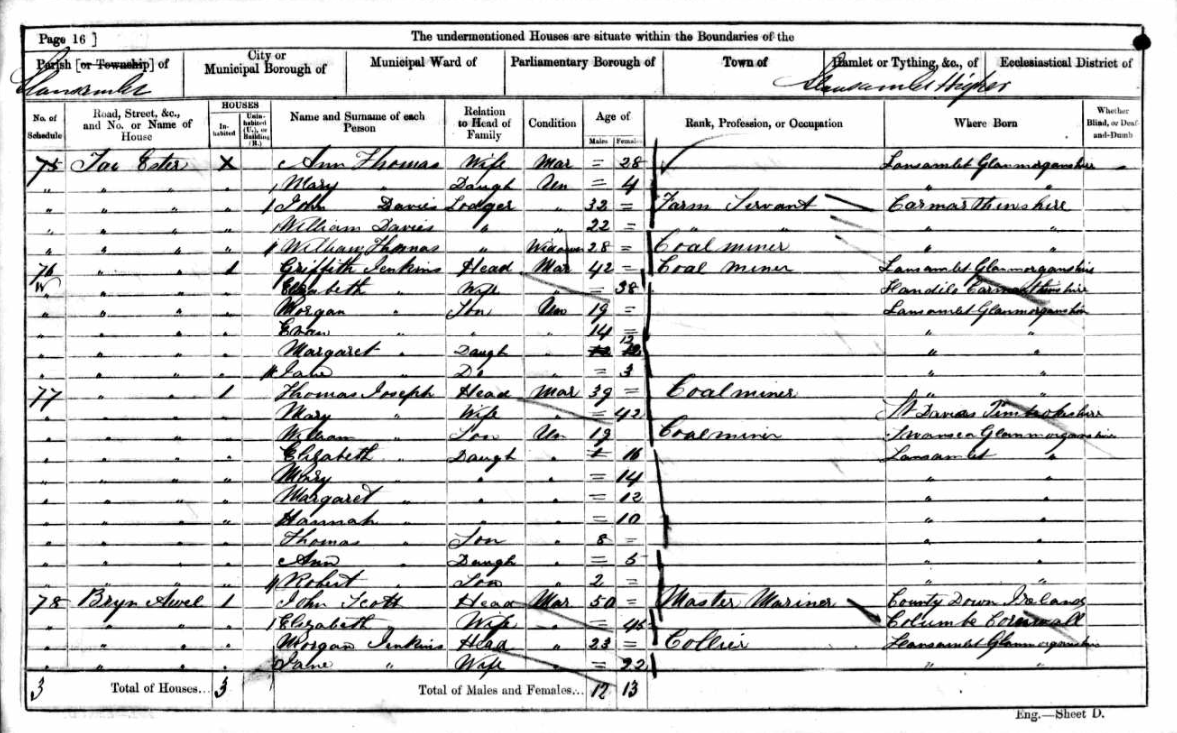 Page 16 ] The undermentioned Houses are situate within the Boundaries of the
Parish [or Township] of City or Municipal Borough of Municipal Ward of Parliamentary Borough of Town of Hamlet or Tything, &c., of Ecclesiastical District of
Llansamlet Llansamlet Higher
No. of Schedule Road, Street, &c., and No. or Name of House HOUSES Inhabited Uninhabited (U.), or Building (B.) Name and Surname of each Person Relation to Head of Family Condition Age of Males Females Rank, Profession, or Occupation Where Born Whether Blind, or Deaf-and-Dumb
75 Tai Ester X Ann Thomas Wife Mar = 28 Lansamlet Glanmorganshire
" " " " Mary " Daugh Un = 4 " "
" " " " John Davies Lodger " 32 = Farm Servant Carmarthinshire
" " " " William Davies " " 22 = " " " "
" " " " William Thomas " Widower 28 = Coal miner " "
76 " " 1 Griffith Jenkins Head Mar 42 = Coal miner Lansamlet Glanmorganshire
" " " " Elizabeth " Wife " = 38 Llandilo Carmarthinshire
" " " " Morgan " Son Un 19 = Lansamlet Glanmorganshire
" " " " Evan " " " 14 = " "
" " " " Margaret " Daugh " 12 " "
" " " " Jane " Do " = 3 " "
77 " " 1 Thomas Joseph Head Mar 39 = Coal miner " "
" " " " Mary " Wife " = 42 St Davids Pimbrokshire
" " " " William " Son Un 19 = Coal miner Swansea Glanmorganshire
" " " " Elizabeth " Daugh " = 16 Lansamlet "
" " " " Mary " " " = 14 " "
" " " " Margaret " " " = 12 " "
" " " " Hannah " " " = 10 " "
" " " " Thomas " Son " 8 = " "
" " " " Ann " Daugh " = 5 " "
" " " " Robert " Son " 2 = " "
78 Bryn Awel 1 John Scott Head Mar 50 = Master Mariner County Down Ireland
" " " " Elizabeth " Wife " = 45 Columbe Cornwall
" " " " Morgan Jenkins Head " 23 = Collier Llansamlet Glanmorganshire
" " " " Jane " Wife " = 22 " "
3 Total of Houses... 3 Total of Males and Females... 12 13
Eng.—Sheet D.